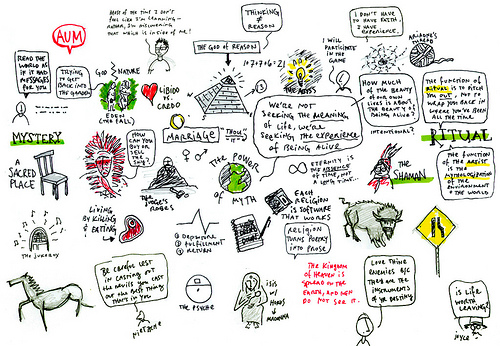 MOST OF THE TIME I DON'T
FEEL LIKE I'M LEARNING -
RATHER, I'M DISCOVERING
THAT WHICH IS INSIDE OF ME!
THINKING
≠
REASON
I DON'T HAVE
TO HAVE FAITH, I
HAVE
EXPERIENCE.
ARIADNE'S
THREAD
AUM
THE GOD OF REASON
1+7+7+6=21
I WILL
PARTICIPATE
IN THE
GAME
READ THE
WORLD AS
IF IT HAD
MESSAGES
FOR YOU
TRYING
TO GET
BACK INTO
THE GARDEN
GOD
NATURE
EDEN
(THE FALL)
LIBIDO
VS.
CREDO
THE ABYSS
HOW MUCH
OF THE BEAUTY
OF OUR OWN
LIVES IS ABOUT
THE BEAUTY OF
BEING ALIVE?
THE FUNCTION OF
RITUAL IS TO PITCH
YOU OUT, NOT TO
WRAP YOU BACK IN
WHERE YOU'VE BEEN
ALL THE TIME.
WE'RE NOT
SEEKING THE MEANING
OF LIFE, WE'RE
SEEKING THE EXPERIENCE
OF BEING ALIVE
INTENTIONAL?
MYSTERY
HOW CAN
YOU BUY
OR
SELL
THE
SKY?
MARRIAGE
"THOU"
"IT"
RITUAL
A
SACRED
PLACE
THE POWER
OF MYTH
ETERNITY
IS THE ABSENCE
OF TIME, NOT
A LONG TIME...
THE
SHAMAN
THE FUNCTION
OF THE ARTIST
IS THE
MYTHOLOGIZATION
OF THE
ENVIRONMENT +
THE WORLD
THE JUDGE'S
ROBES
THE JUKEBOX
LIVING
BY KILLING
& EATING
1 DEPARTURE
2 FULFILLMENT
3 RETURN
EACH
RELIGION
IS SOFTWARE
THAT WORKS
RELIGION
TURNS POETRY
INTO PROSE
BE CAREFUL LEST
IN CASTING OUT
THE DEVILS YOU CAST
OUT THE BEST THING
THAT'S IN YOU
NIETZSCHE
THE PSYCHE
ISIS
W/
HORUS
MADONNA
THE KINGDOM
OF HEAVEN IS
SPREAD ON THE
EARTH, AND MEN
DO NOT SEE IT.
LOVE THINE
ENEMIES B/C
THEY ARE THE
INSTRUMENTS
OF YR DESTINY
IS LIFE
WORTH
LEAVING?